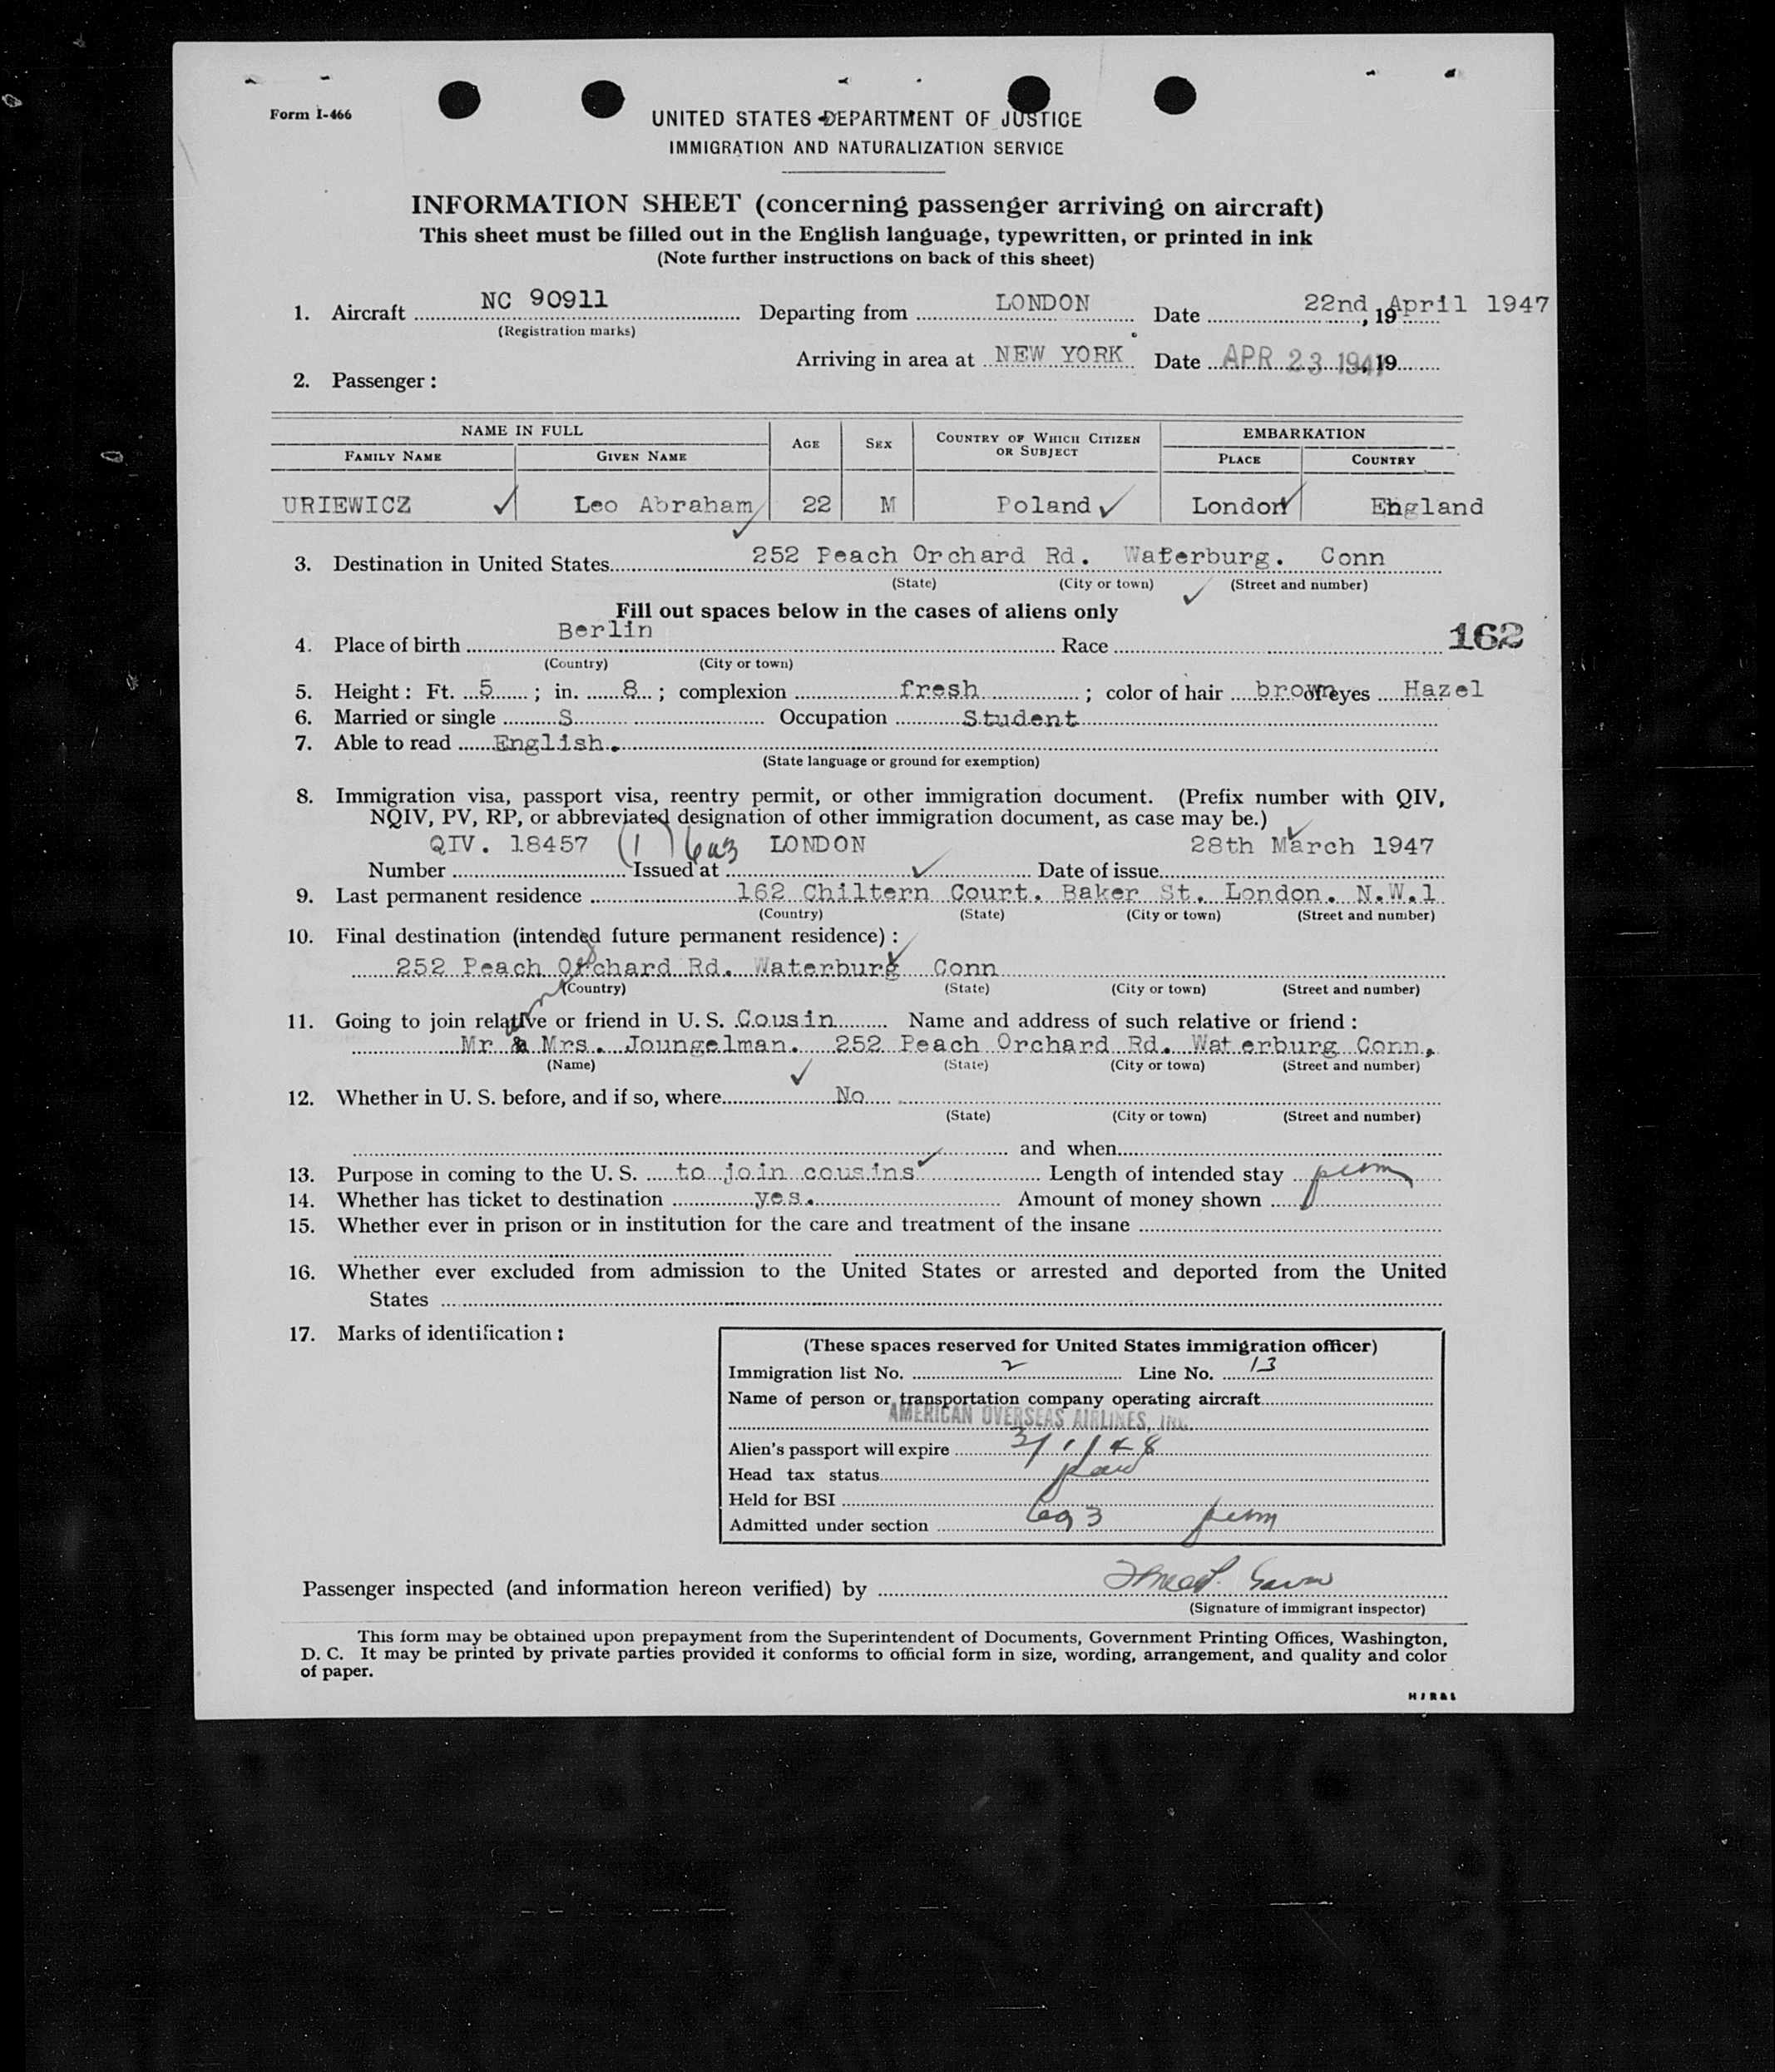 Form I-466
UNITED STATES DEPARTMENT OF JUSTICE
IMMIGRATION AND NATURALIZATION SERVICE
INFORMATION SHEET (concerning passenger arriving on aircraft)
This sheet must be filled out in the English language, typewritten, or printed in ink
(Note further instructions on back of this sheet)
1. Aircraft NC 90911 Departing from LONDON Date 22nd April 1947, 19
(Registration marks)
Arriving in area at NEW YORK Date APR 23 1947, 19
2. Passenger:
NAME IN FULL AGE SEX COUNTRY OF WHICH CITIZEN OR SUBJECT EMBARKATION
FAMILY NAME GIVEN NAME PLACE COUNTRY
URIEWICZ Leo Abraham 22 M Poland London England
3. Destination in United States 252 Peach Orchard Rd. Waterburg. Conn
(State) (City or town) (Street and number)
Fill out spaces below in the cases of aliens only
4. Place of birth Berlin Race 162
(Country) (City or town)
5. Height: Ft. 5; in. 8; complexion fresh; color of hair brown of eyes Hazel
6. Married or single S Occupation Student
7. Able to read English.
(State language or ground for exemption)
8. Immigration visa, passport visa, reentry permit, or other immigration document. (Prefix number with QIV,
NQIV, PV, RP, or abbreviated designation of other immigration document, as case may be.)
QIV. 18457 (1) 6a3 LONDON 28th March 1947
Number Issued at Date of issue
9. Last permanent residence 162 Chiltern Court. Baker St. London. N.W.1
(Country) (State) (City or town) (Street and number)
10. Final destination (intended future permanent residence):
252 Peach Orchard Rd. Waterburg Conn
(Country) (State) (City or town) (Street and number)
11. Going to join relative or friend in U. S. Cousin Name and address of such relative or friend:
Mr & Mrs. Joungelman. 252 Peach Orchard Rd. Waterburg Conn.
(Name) (State) (City or town) (Street and number)
12. Whether in U. S. before, and if so, where No
(State) (City or town) (Street and number)
and when
13. Purpose in coming to the U. S. to join cousins Length of intended stay perm
14. Whether has ticket to destination yes. Amount of money shown
15. Whether ever in prison or in institution for the care and treatment of the insane
16. Whether ever excluded from admission to the United States or arrested and deported from the United
States
17. Marks of identification:
(These spaces reserved for United States immigration officer)
Immigration list No. 2 Line No. 13
Name of person or transportation company operating aircraft
AMERICAN OVERSEAS AIRLINES, INC.
Alien's passport will expire 3/1/48
Head tax status paid
Held for BSI
Admitted under section 6a3 perm
Passenger inspected (and information hereon verified) by
(Signature of immigrant inspector)
This form may be obtained upon prepayment from the Superintendent of Documents, Government Printing Offices, Washington,
D. C. It may be printed by private parties provided it conforms to official form in size, wording, arrangement, and quality and color
of paper.